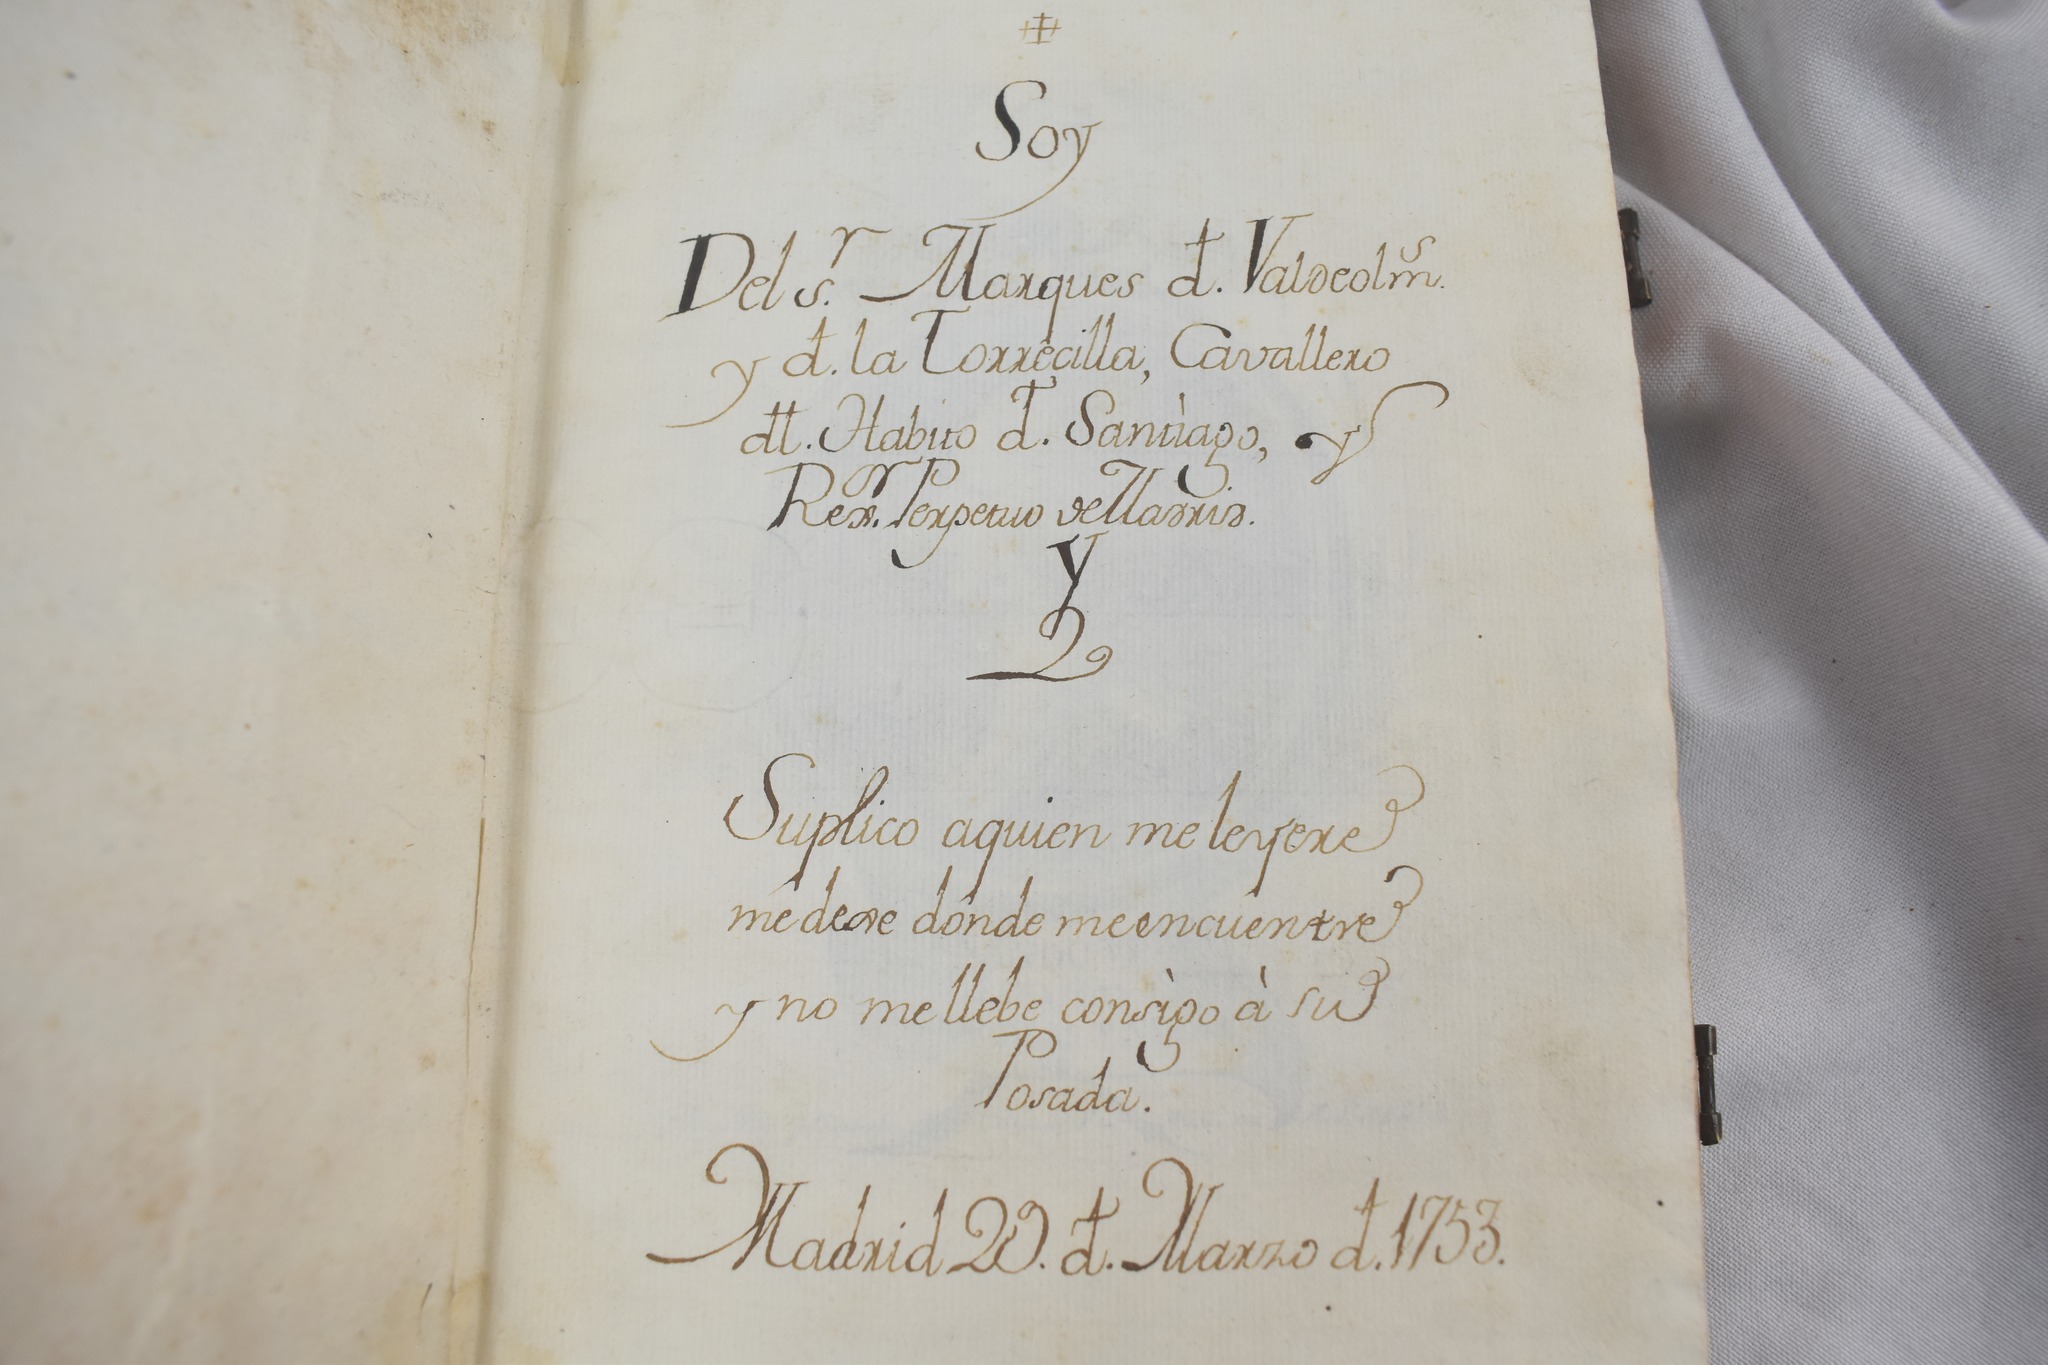 Soy
Del s.r Marques d. Valdeolm.s
y d. la Torrecilla, Cavallero
dl. Habito d. Santiago, y
Rex.r Perpetuo de Madrid.
y
Suplico aquien me leyere
me dexe donde me encuentre
y no me llebe consigo à su
Posada.
Madrid 29. d. Marzo d. 1753.